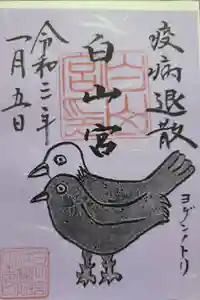 疫病退散
白山宮
令和三年
一月五日
ヨゲンノトリ